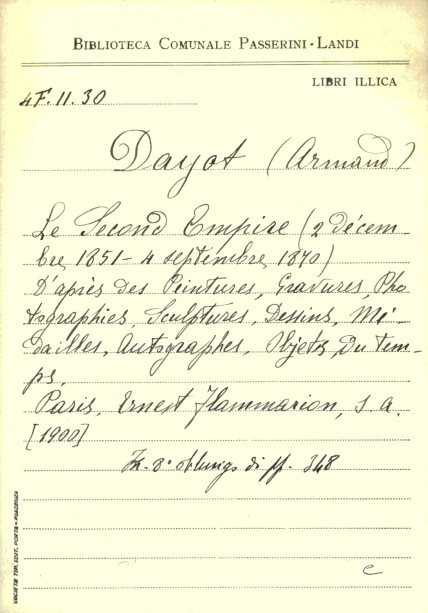 BIBLIOTECA COMUNALE PASSERINI-LANDI
LIBRI ILLICA
4F.11.30
Dayot (Armand)
Le Second Empire (2 décem-
bre 1851 - 4 septembre 1870)
D'après des Peintures, Gravures, Pho
tographies, Sculptures, Dessins, Mé-
dailles, Autographes, Objets Du tem-
ps.
Paris, Ernest Flammarion, s.a.
[1900]
In-8° oblungo di pp. 348
SOCIETÀ TIP. EDIT. PORTA - PIACENZA
e